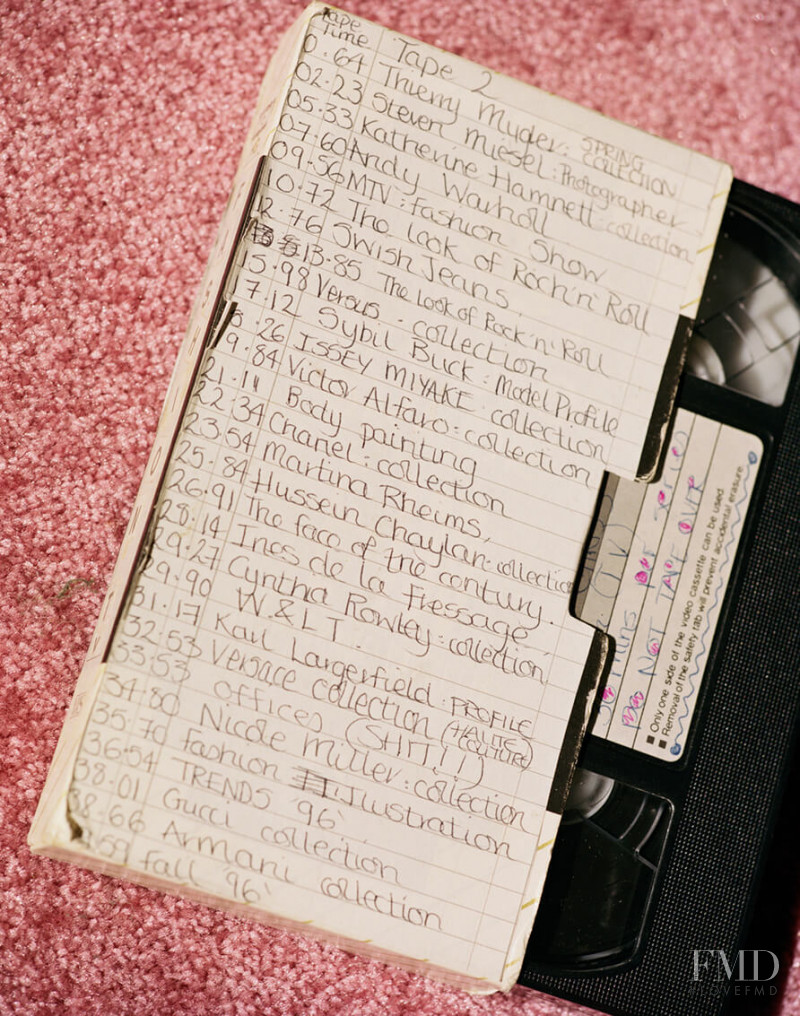 Tape Time
Tape 2
0.64 Thierry Mugler: SPRING COLLECTION
02.23 Steven Miesel: Photographer
05.33 Katherine Hamnett: collection
07.60 Andy Warholl
09.56 MTV: Fashion Show
10.72 The look of Rock'n' Roll
12.76 Swish Jeans.
13.85 The look of Rock'n' Roll
15.98 Versus. collection
17.12 Sybil Buck: Model Profile
8.26 ISSEY MIYAKE: collection
9.84 Victor Alfaro: collection
21.11 Body painting
22.34 Chanel: collection
23.54 Martina Rheims,
25.84 Hussein Chaylan: collection
26.91 The face of the century.
28.14 Ines de la Fressage
29.27 Cyntha Rowley: collection
29.90 W.& L T.
31.17 Karl Largerfield: PROFILE
32.53 Versace collection (HAUTE COUTURE)
33.53 offices (SHIT!!)
34.80 Nicole Miller: collection
35.70 Fashion Illustration
36.54 TRENDS '96'
38.01 Gucci collection
38.66 Armani collection
.59 Fall '96'
DO NOT TAPE OVER
■ Only one side of the video cassette can be used.
■ Removal of the safety tab will prevent accidental erasure.
FMD
ILOVEFMD